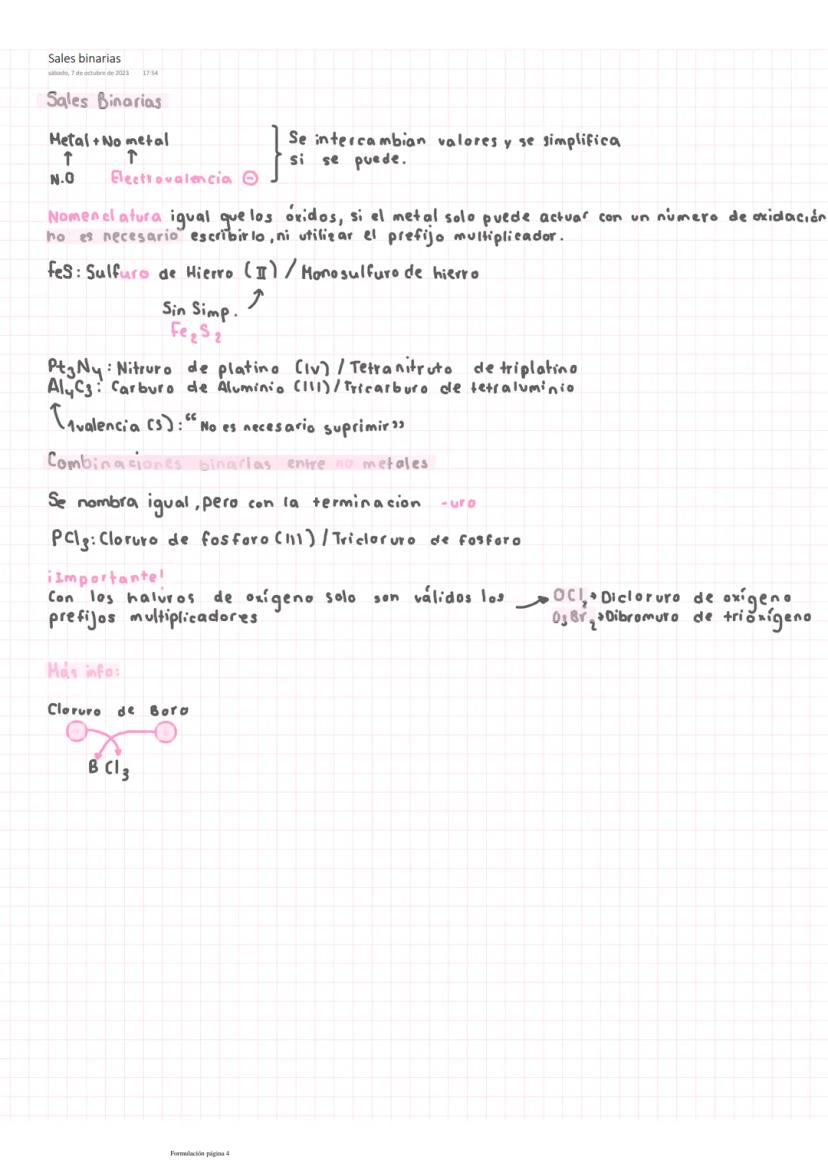 Sales binarias
sábado, 7 de octubre de 2023 17:54
Sales Binarias
Metal + No metal
↑ ↑
N.O Electrovalencia ⊖
Se intercambian valores y se simplifica
si se puede.
Nomenclatura igual que los óxidos, si el metal solo puede actuar con un número de oxidación
no es necesario escribirlo, ni utilizar el prefijo multiplicador.
FeS: Sulfuro de Hierro (II) / Monosulfuro de hierro
Sin Simp.
Fe₂S₂
Pt₃N₄: Nitruro de platino (IV) / Tetranitruto de triplatino
Al₄C₃: Carburo de Aluminio (III) / Tricarburo de tetraluminio
1valencia (3): “No es necesario suprimir”
Combinaciones binarias entre no metales
Se nombra igual, pero con la terminacion -uro
PCl₃: Cloruro de fosforo (III) / Tricloruro de fosforo
¡Importante!
Con los haluros de oxígeno solo son válidos los → OCl₂→ Dicloruro de oxígeno
prefijos multiplicadores O₃Br₂→Dibromuro de trioxígeno
Más info:
Cloruro de Boro
B Cl₃
Formulación página 4